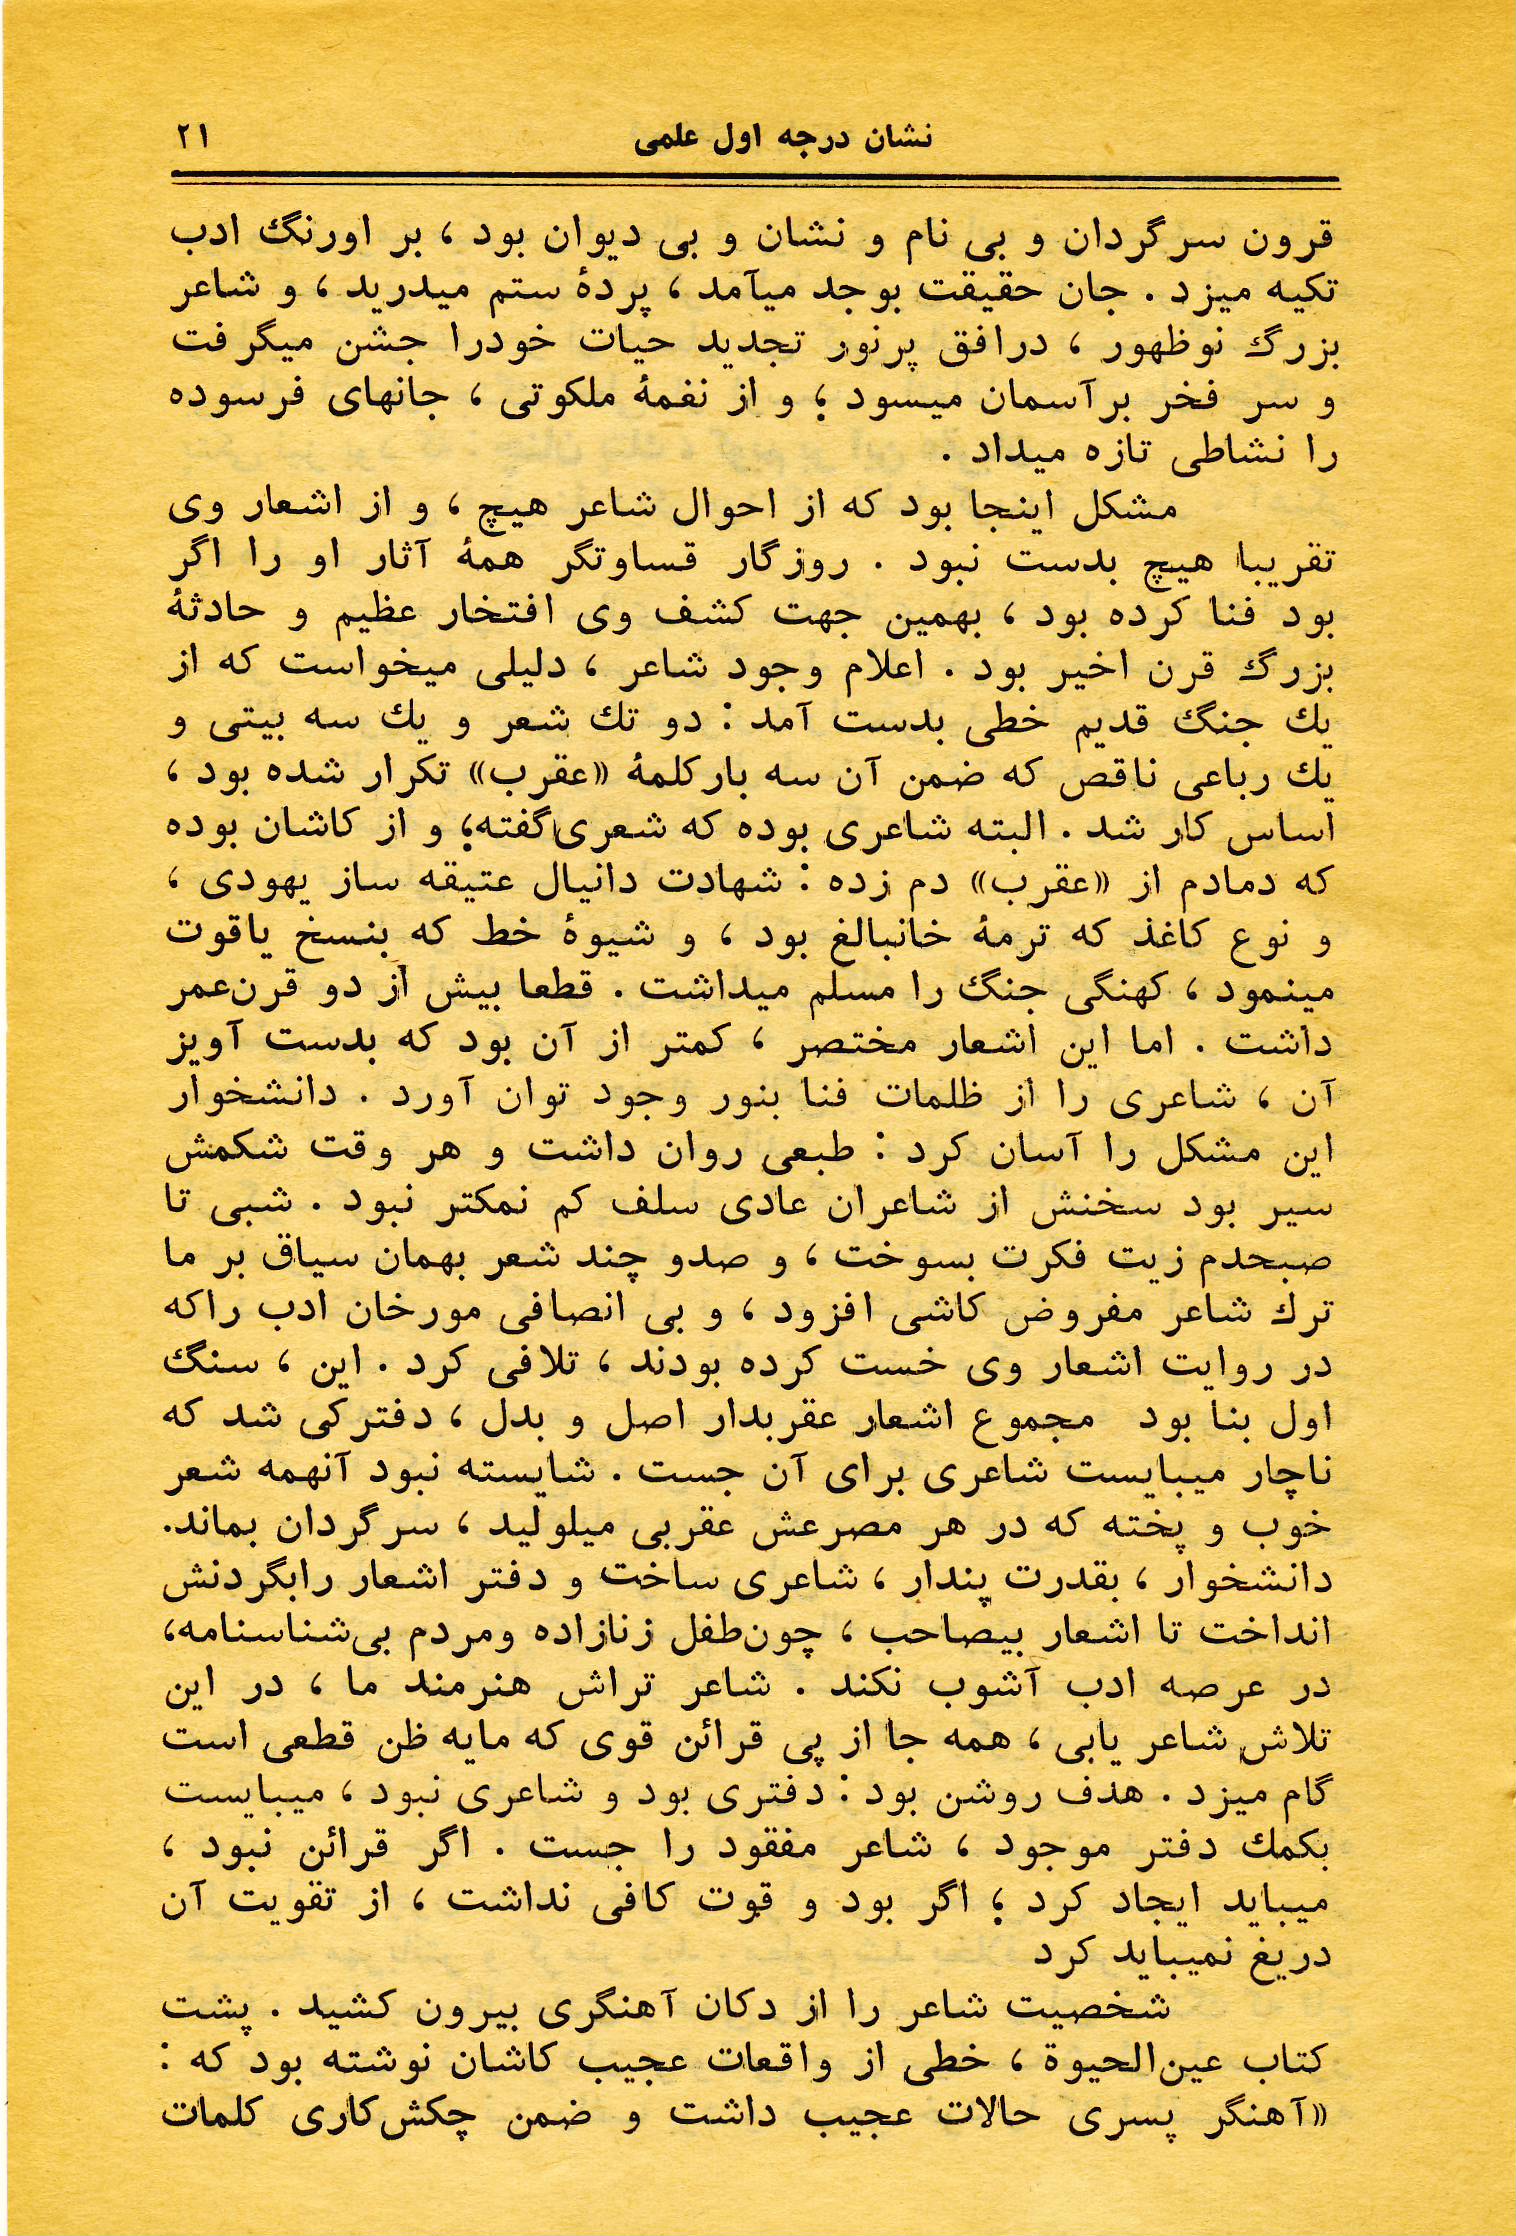 نشان درجه اول علمی ۲۱
قرون سرگردان و بی نام و نشان و بی دیوان بود ، بر اورنگ ادب
تکیه میزد . جان حقیقت بوجد میآمد ، پردهٔ ستم میدرید ، و شاعر
بزرگ نوظهور ، درافق پرنور تجدید حیات خودرا جشن میگرفت
و سر فخر برآسمان میسود ؛ و از نغمهٔ ملکوتی ، جانهای فرسوده
را نشاطی تازه میداد .
مشکل اینجا بود که از احوال شاعر هیچ ، و از اشعار وی
تقریبا هیچ بدست نبود . روزگار قساوتگر همهٔ آثار او را اگر
بود فنا کرده بود ، بهمین جهت کشف وی افتخار عظیم و حادثهٔ
بزرگ قرن اخیر بود . اعلام وجود شاعر ، دلیلی میخواست که از
یك جنگ قدیم خطی بدست آمد : دو تك شعر و یك سه بیتی و
یك رباعی ناقص که ضمن آن سه بارکلمهٔ «عقرب» تکرار شده بود ،
اساس کار شد . البته شاعری بوده که شعری گفته؛ و از کاشان بوده
که دمادم از «عقرب» دم زده : شهادت دانیال عتیقه ساز یهودی ،
و نوع کاغذ که ترمهٔ خانبالغ بود ، و شیوهٔ خط که بنسخ یاقوت
مینمود ، کهنگی جنگ را مسلم میداشت . قطعا بیش از دو قرن‌عمر
داشت . اما این اشعار مختصر ، کمتر از آن بود که بدست آویز
آن ، شاعری را از ظلمات فنا بنور وجود توان آورد . دانشخوار
این مشکل را آسان کرد : طبعی روان داشت و هر وقت شکمش
سیر بود سخنش از شاعران عادی سلف کم نمکتر نبود . شبی تا
صبحدم زیت فکرت بسوخت ، و صدو چند شعر بهمان سیاق بر ما
ترك شاعر مفروض کاشی افزود ، و بی انصافی مورخان ادب راکه
در روایت اشعار وی خست کرده بودند ، تلافی کرد . این ، سنگ
اول بنا بود مجموع اشعار عقربدار اصل و بدل ، دفترکی شد که
ناچار میبایست شاعری برای آن جست . شایسته نبود آنهمه شعر
خوب و پخته که در هر مصرعش عقربی میلولید ، سرگردان بماند.
دانشخوار ، بقدرت پندار ، شاعری ساخت و دفتر اشعار رابگردنش
انداخت تا اشعار بیصاحب ، چون‌طفل زنازاده ومردم بی‌شناسنامه،
در عرصه ادب آشوب نکند . شاعر تراش هنرمند ما ، در این
تلاش شاعر یابی ، همه جا از پی قرائن قوی که مایه ظن قطعی است
گام میزد . هدف روشن بود : دفتری بود و شاعری نبود ، میبایست
بکمك دفتر موجود ، شاعر مفقود را جست . اگر قرائن نبود ،
میباید ایجاد کرد ؛ اگر بود و قوت کافی نداشت ، از تقویت آن
دریغ نمیباید کرد
شخصیت شاعر را از دکان آهنگری بیرون کشید . پشت
کتاب عین‌الحیوة ، خطی از واقعات عجیب کاشان نوشته بود که :
«آهنگر پسری حالات عجیب داشت و ضمن چکش‌کاری کلمات